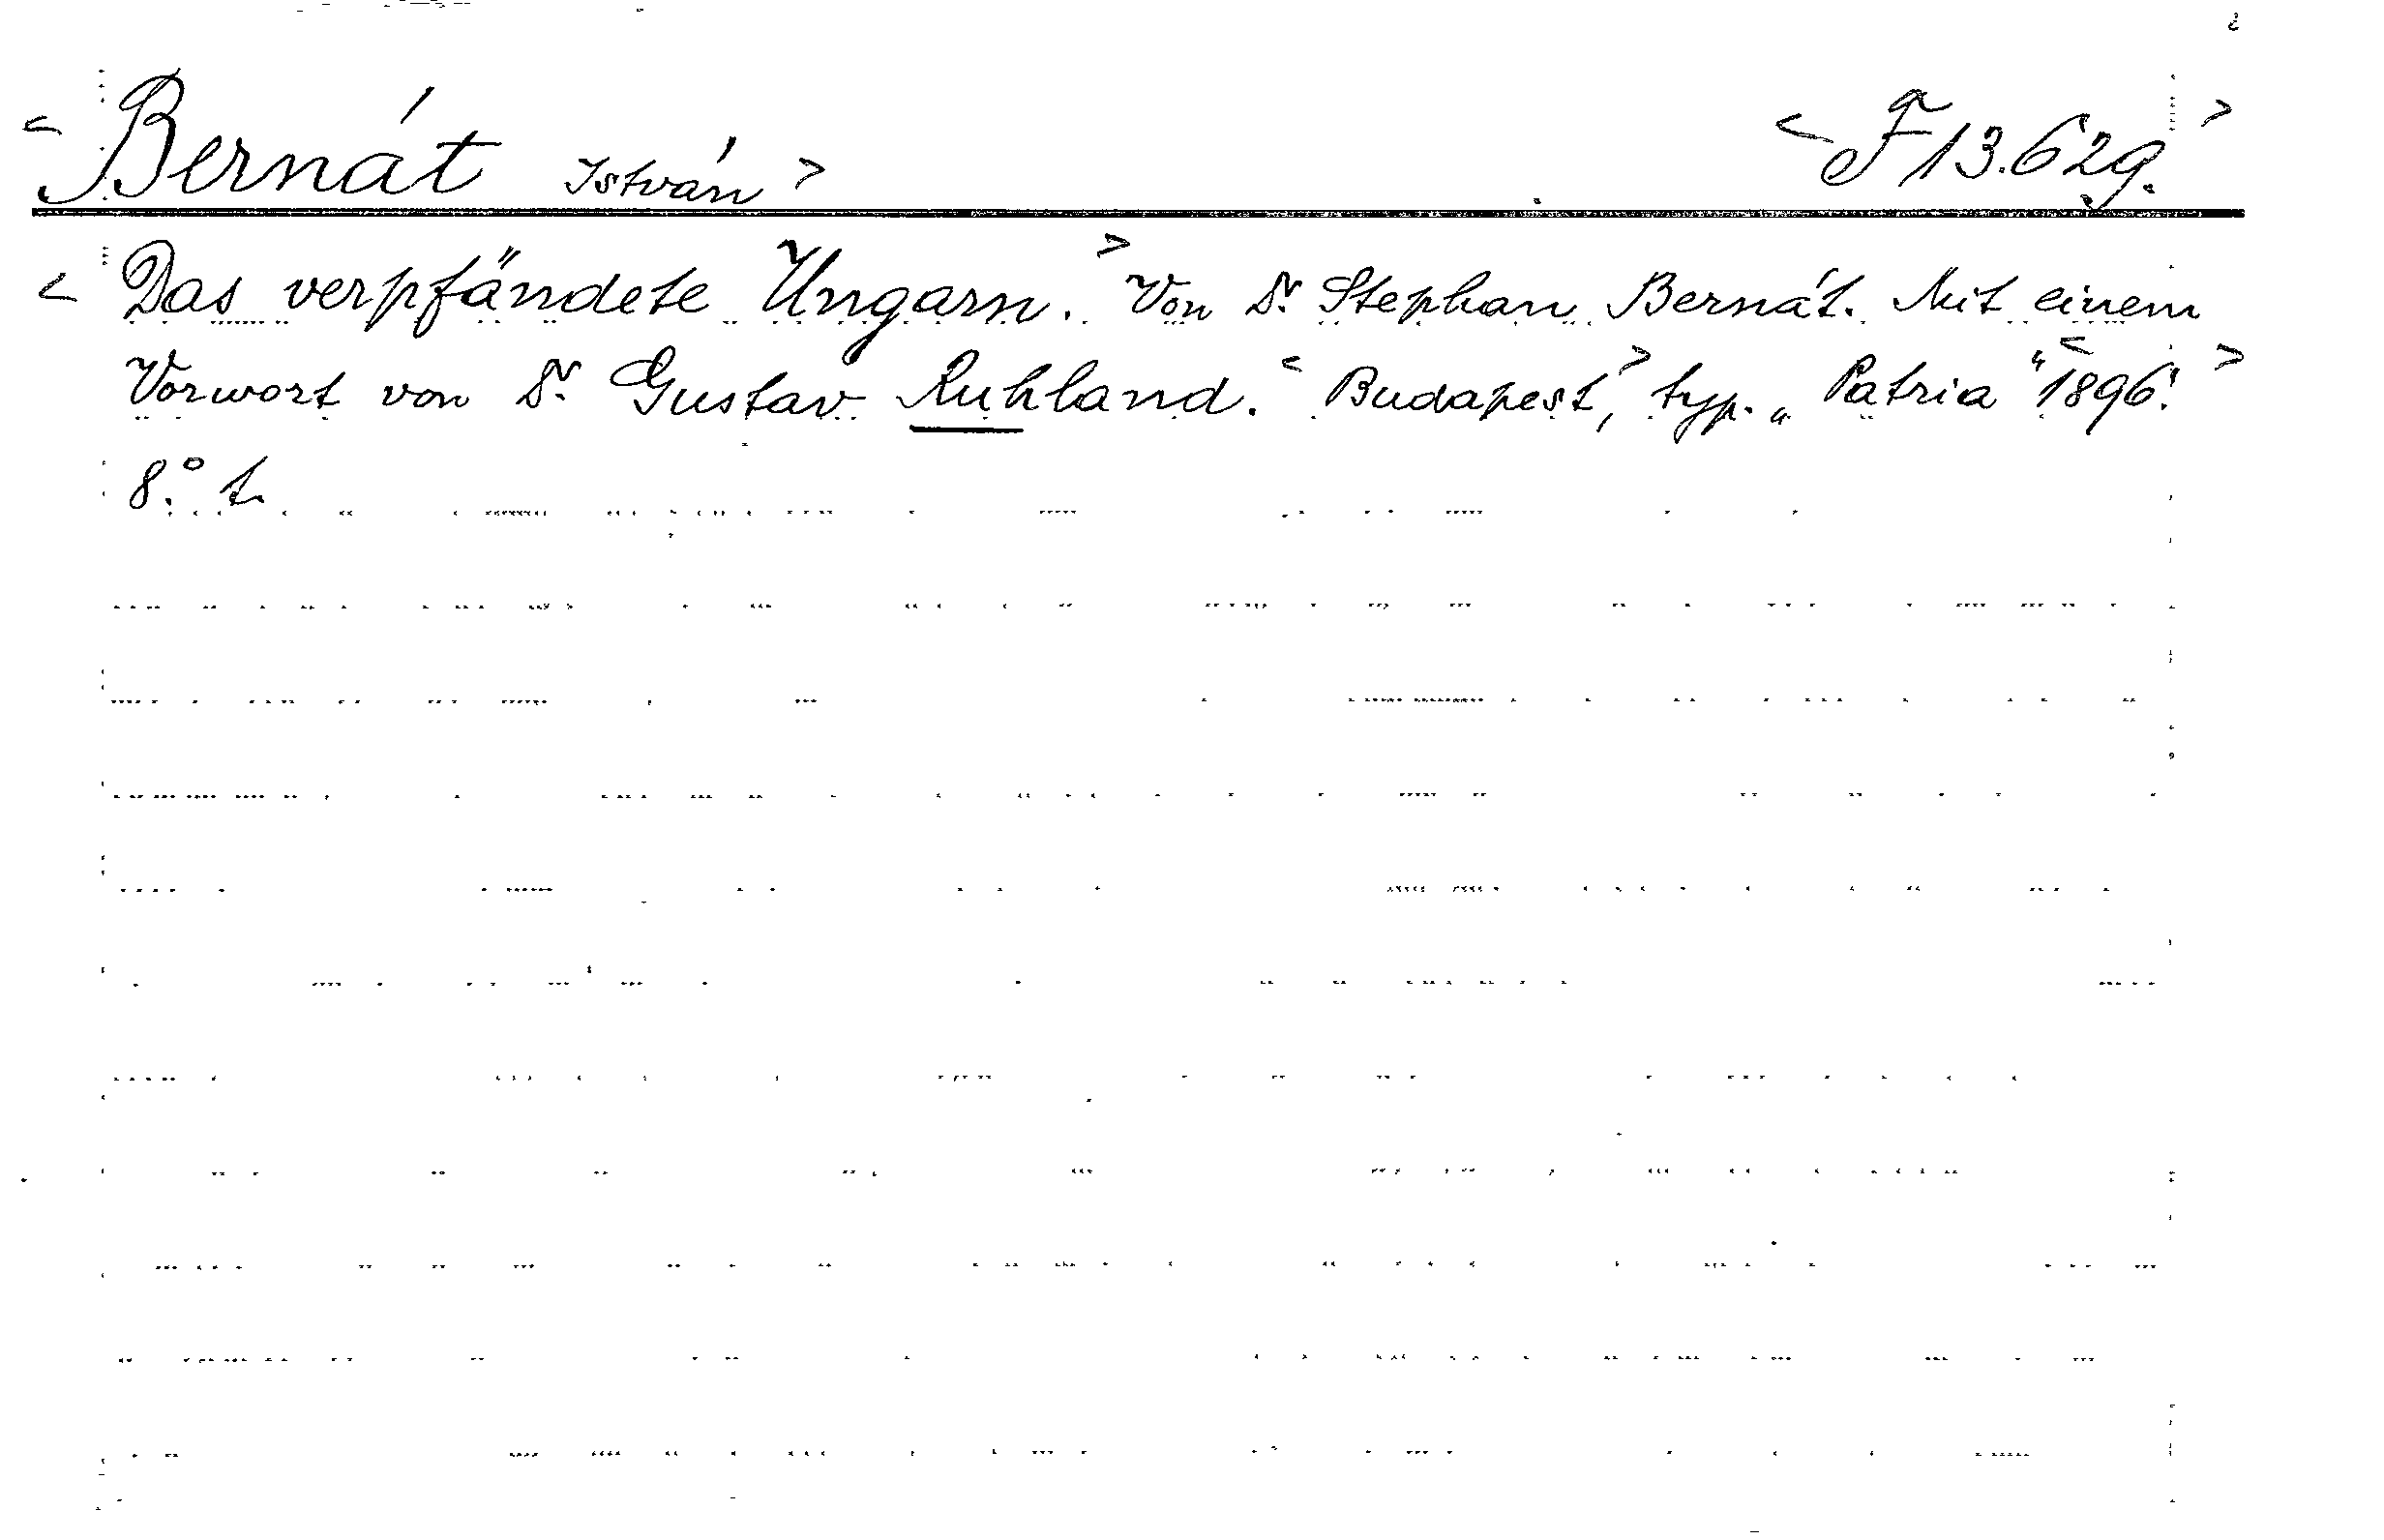 <Bernát István> <F 13.629.>
<Das verpfändete Ungarn.> Von Dr. Stephan Bernát. Mit einem
Vorwort von Dr. Gustav Ruhland. <Budapest,> typ. „Patria" <1896.>
8.° t.